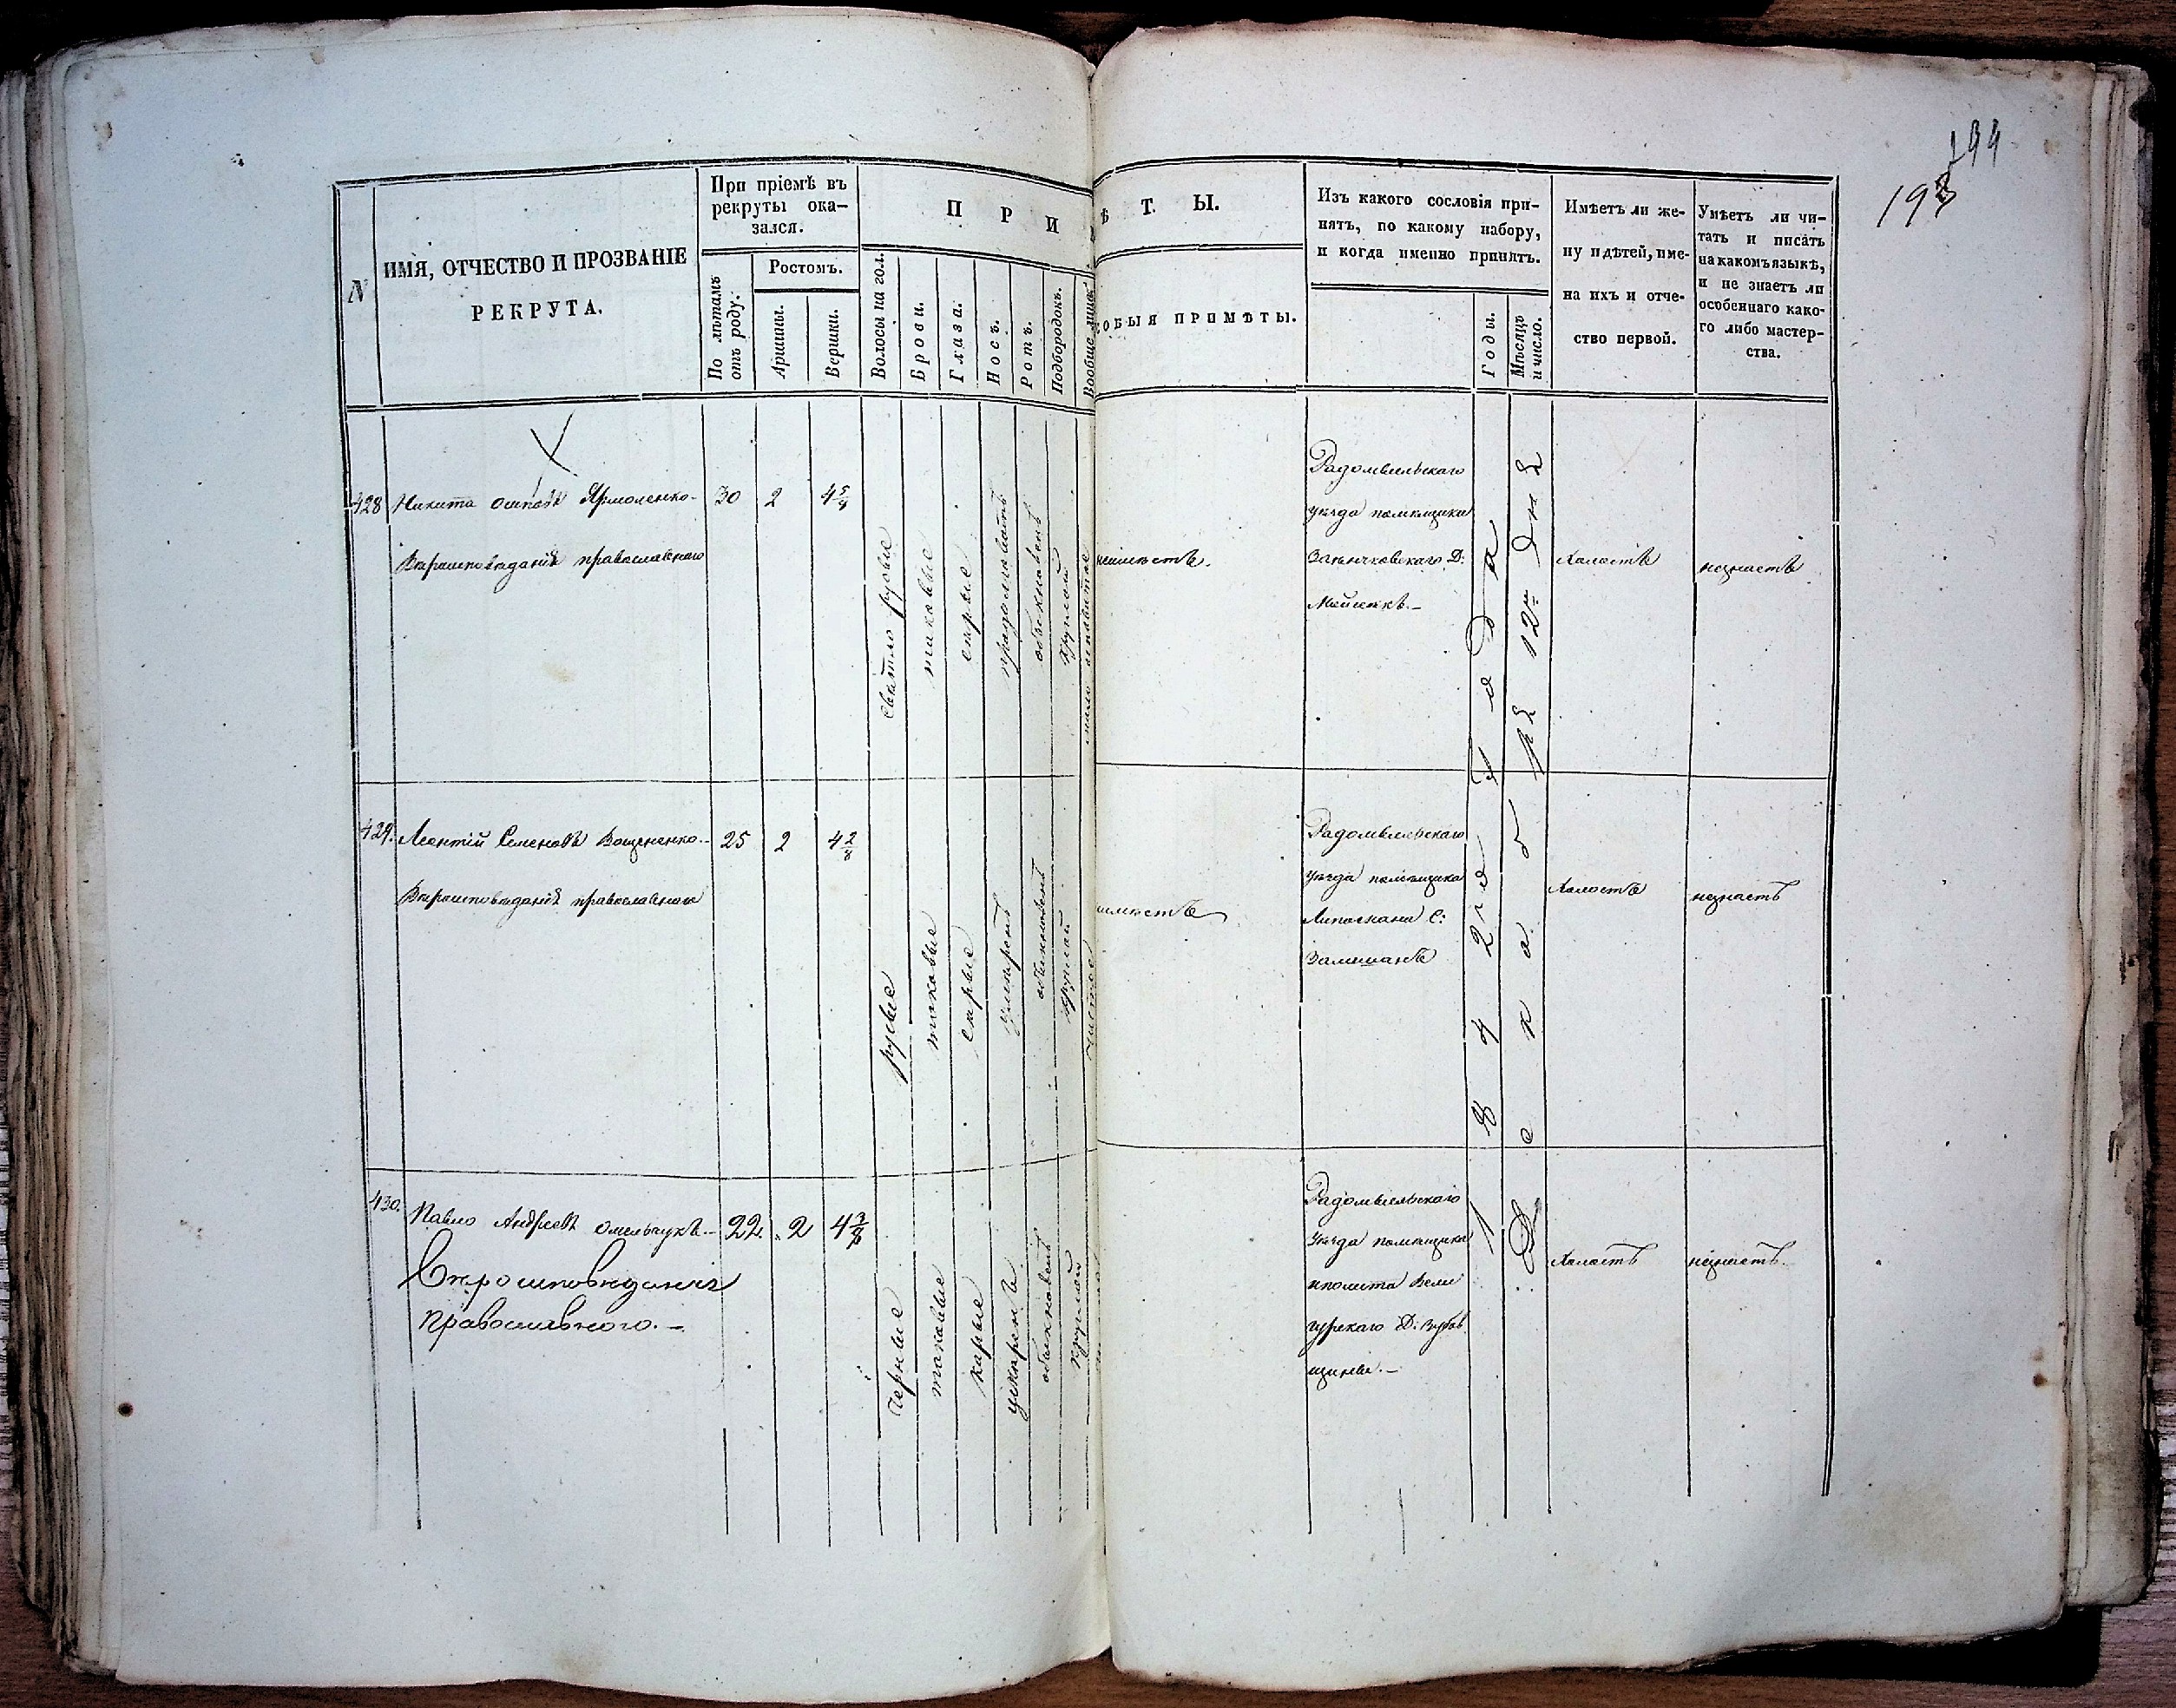 194
193
N
ИМЯ, ОТЧЕСТВО И ПРОЗВАНІЕ
РЕКРУТА.
При пріемѣ въ
рекруты ока-
зался.
По лѣтамъ
отъ роду.
Ростомъ.
Аршины.
Вершки.
П Р И
ѣ Т Ы.
Волосы на гол.
Брови.
Глаза.
Носъ.
Ротъ.
Подбородокъ.
Вообще лице
ОБЫЯ ПРИМѢТЫ.
Изъ какого сословія при-
нятъ, по какому набору,
и когда именно принятъ.
Годы.
Мѣсяцъ
и число.
Имѣетъ ли же-
ну и дѣтей, име-
на ихъ и отче-
ство первой.
Умѣетъ ли чи-
тать и писать
на какомъ языкѣ,
и не знаетъ ли
особеннаго како-
го либо мастер-
ства.
428
Никита Осиповъ Ярмоленко-
Вѣроисповѣданія православнаго
30
2
4 5/8
свѣтло русые
таковые
сѣрые
продолговатъ
обыкновенъ
круглой
неимѣетъ.
Радомысльскаго
уѣзда помѣщика
Д:
холостъ
незнаетъ
429.
Леонтій Семеновъ Вощененко.-
Вѣроисповѣданія православнаго
25
2
4 2/8
русые
таковые
сѣрые
умѣренъ
обыкновенъ
круглой
чистое
имѣетъ
Радомысльскаго
уѣзда помѣщика
С:
холостъ
незнаетъ
430.
Павло Андреевъ Омельчукъ.-
Вѣроисповѣданія
православного.-
22.
2
4 3/8
черные
таковые
карые
умѣренъ
обыкновенъ
круглой
Радомысльскаго
уѣзда помѣщика
иполита Вели
гурскаго Д: Зубов
щины.-
холостъ
незнаетъ.
184 2го года
Декабря 12го дня